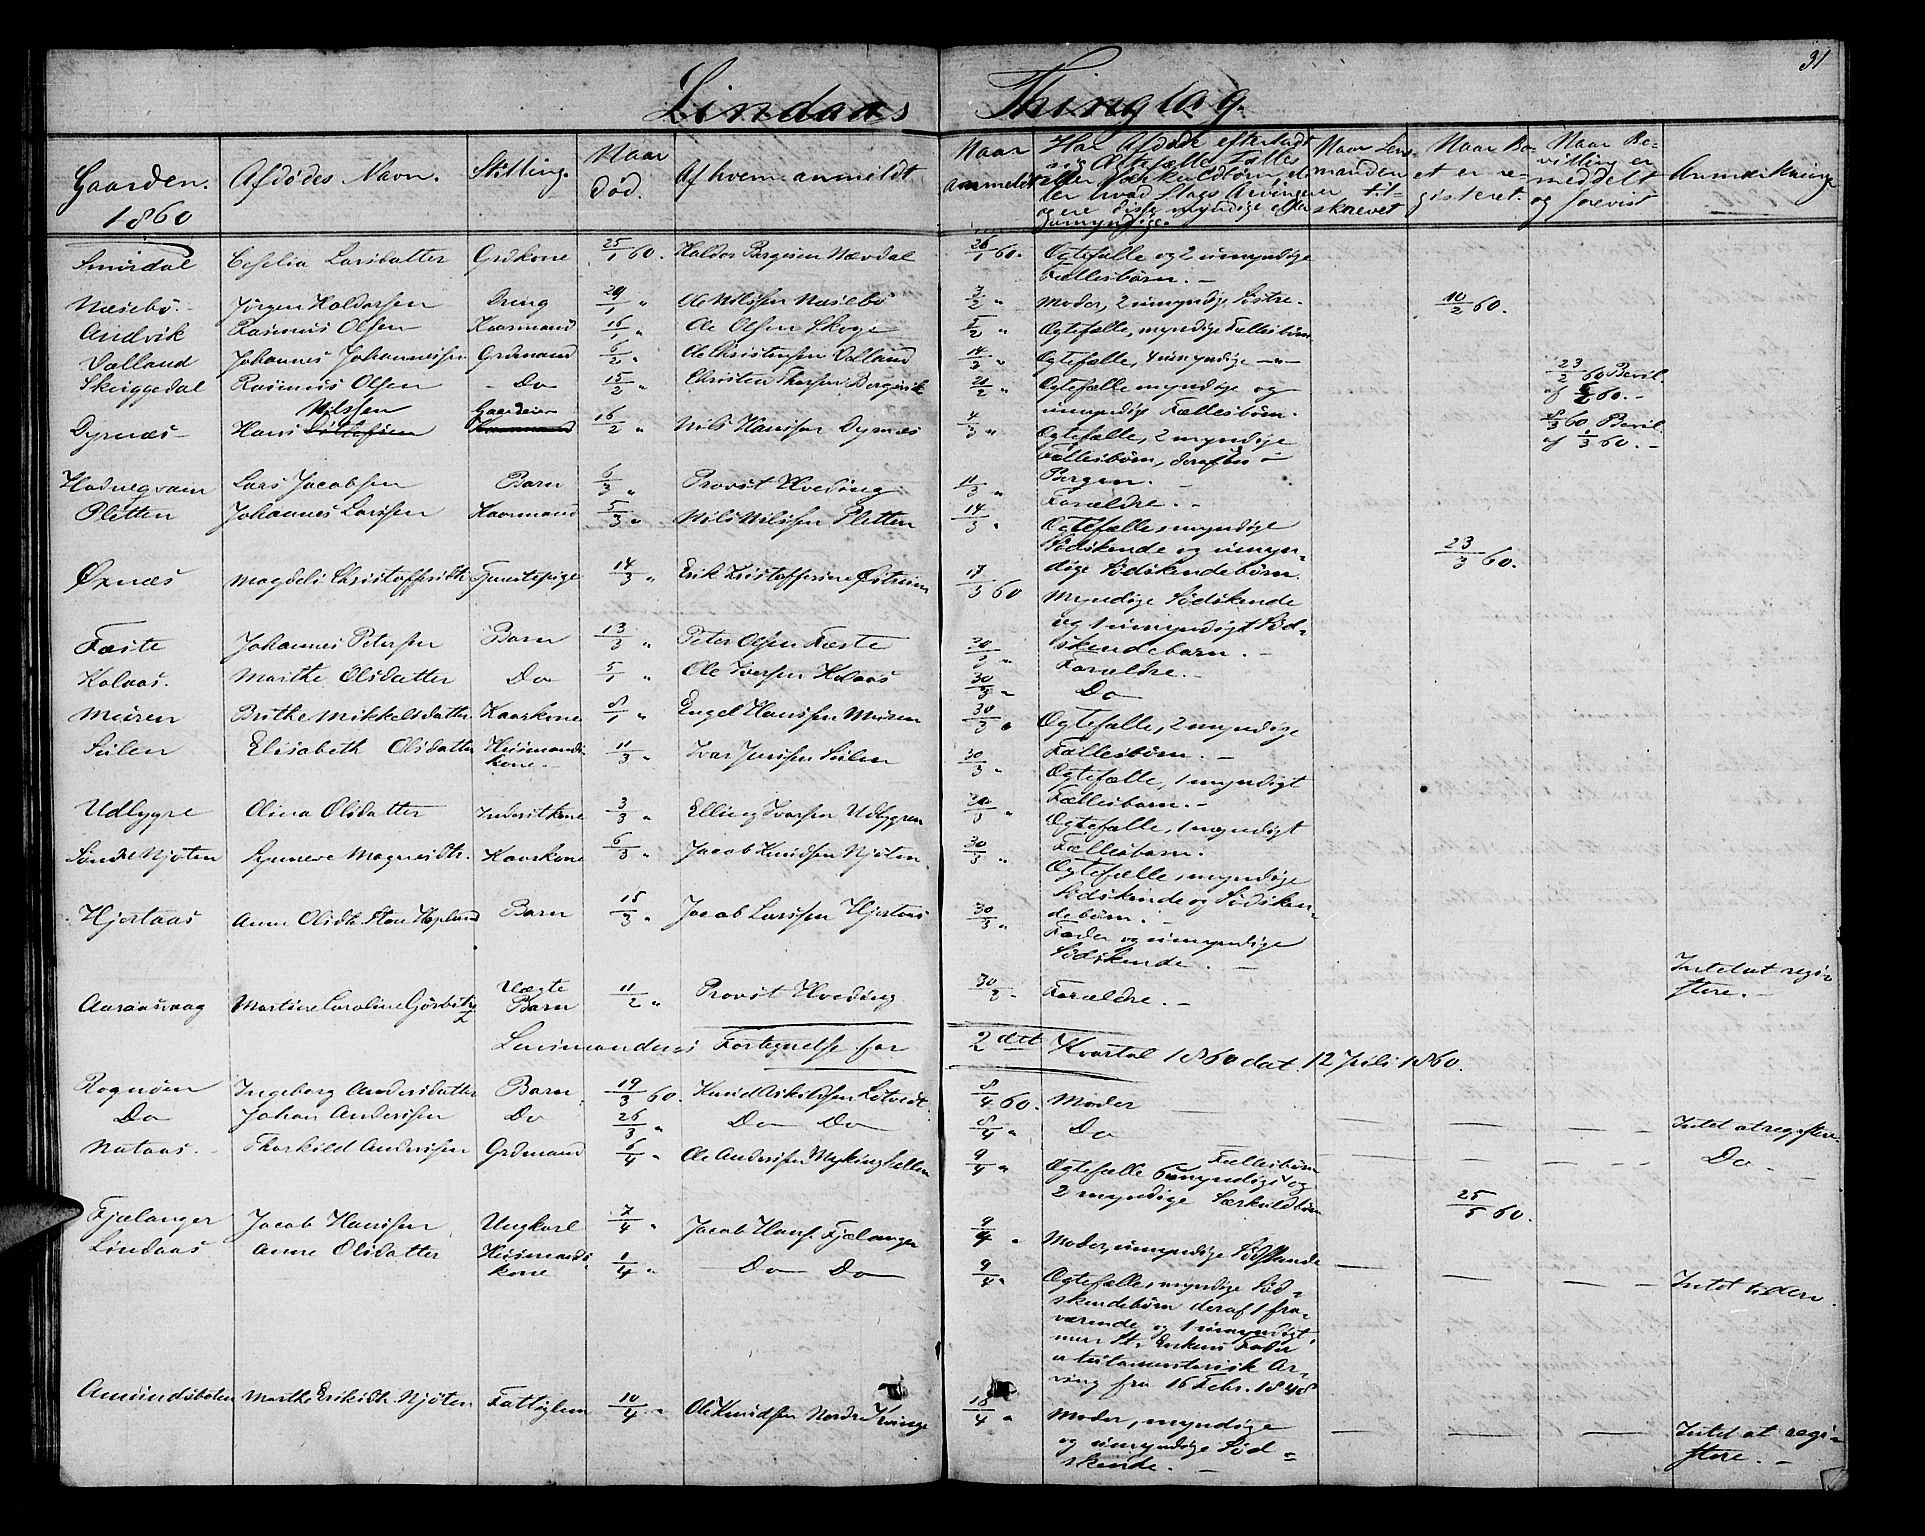 31
Lindaas Thinglag.
Gaarden. 1860 | Afdødes Navn. | Stilling. | Naar død. | Af hvem anmeldt | Naar anmeldt | Har Afdøde efterladt sig Ægtefælle, Fælles eller Særkuldbørn, eller hvad Slags Arvinger og ere disse myndige eller umyndige. | Naar Lensmanden er tilskrevet | Naar Boet er registeret. | Naar Bevilling er meddelt og forevist | Anmærkninger
Smørdal | Cecelia Larsdatter | Grdkone | 25/1 60. | Haldor Børgesen Nævdal | 26/1 60. | Ægtefælle og 2 umyndige
Fællesbørn. –
Næsebø. | Jørgen Haldorsen | Dreng | 29/1 " | Ole Nilssen Næsebø | 3/2 " | Moder, 2 umyndige Søstre. | 10/2 60.
Andvik | Rasmus Olsen | Kaarmand | 16/1 " | Ole Olsen Skoge | 5/2 " | Ægtefælle, myndige Fællesbørn
Dalland | Johannes Johannessen | Grdmand | 6/2 " | Ole Christensen Dalland | 14/2 " | Ægtefælle, 4 umyndige – " –
Skuggedal | Rasmus Olsen | Do | 15/2 " | Christen Thorsen Bergsvik | 21/2 " | Ægtefælle myndige og | 23/2 60 Bevil.
umyndige Fællesbørn. | af 2 60. –
Dyrnæs – | Hans Nilssen | Gaardeier | 16/2 " | Nils Hanssen Dyrnæs | 4/3 " | Ægtefælle, 2 myndige | 8/3 60 Bevil.
Fællesbørn, deraf i | af 1/3 60. –
Bergen. –
Hodnegvam | Lars Jacobsen | Barn | 6/3 " | Provst Hveding | 11/3 " | Forældre. –
Pletten | Johannes Larssen | Kaarmand | 5/3 " | Nils Nilssen Pletten | 14/3 " | Ægtefælle, myndige
Sødskende og umyn=
dige Sødskendebørn. | 23/3 60.
Øxnæs | Magdeli Christoffersdtr | Tjenestepige | 14/3 " | Erik Kristoffersen Østreim | 17/3 60 | Myndige Sødskende
og 1 umyndigt Sød=
skendebarn. –
Fæste | Johannes Petersen | Barn | 13/3 " | Peter Olsen Fæste | 30/3 " | Forældre. –
Kolaas. | Marthe Olsdatter | Do | 5/1 " | Ole Iversen Kolaas | 30/3 " | Do
Muren | Brithe Mikkelsdatter | Kaarkone | 8/1 " | Engel Hanssen Muren | 30/3 " | Ægtefælle, 2 myndige
Fællesbørn. –
Seilen | Elisabeth Olsdatter | Huusmands kone. – | 11/3 " | Ivar Jenssen Seilen | 30/3 " | Ægtefælle, 1 myndigt
Fællesbarn. –
Udlygre | Alina Olsdatter | Inderstkone | 3/3 " | Elling Ivarsen Udlygren | 30/3 " | Ægtefælle, 1 myndigt
Fællesbarn.
Søndre Njøten | Synneve Magnesdtr. | Kaarkone | 6/3 " | Jacob Knudsen Njøten | 30/3 " | Ægtefælle, myndige
Sødskende og Sødsken=
debørn. –
Hjortaas | Anne Olsdtr Hopland | Barn | 15/3 " | Jacob Larssen Hjortaas | 30/3 " | Fader og umyndige
Sødskende. –
Aaraasvaag | Martine Caroline | Uægte Barn | 11/2 " | Provst Hveding | 30/3 " | Forældre. – | Intet at regi=
stere. –
Lensmandens Fortegnelse for 2det Kvartal 1860 dat. 12 Juli 1860.
Rognøen | Ingeborg Andersdatter | Barn | 19/3 60. | Knud Askildsen Løtvedt | 8/4 60. | Moder
Do | Johan Anderssen | Do | 26/3 " | Do Do | 8/4 " | Do | Intet at registere
Nataas. | Thorkild Anderssen | Grdmand | 6/4 " | Ole Anderssen Myking | 9/4 " | Ægtefælle 6 myndige Fællesbørn og | Do –
2 myndige Særkuldbørn | 25/5 60.
Fjælanger | Jacob Hanssen | Ungkarl | 7/4 " | Jacob Hanss. Fjælanger | 9/4 " | Moder, umyndige Sødskende
Lindaas | Anne Olsdatter | Huusmands kone | 1/4 " | Do Do | 9/4 " | Ægtefælle myndige Sød= | Intet siden.
skendebørn deraf 1 fra=
værende og 1 umyndigt
men St. Enkens Fader
er testamentarisk Ar=
ving fra 16 Febr. 1848
Amundsboten | Marthe Eriksdtr. Njøten | Fattiglem | 10/4 " | Ole Knudsen Nordre Kvinge | 18/4 " | Moder, myndige | Intet at regi=
og umyndige Sød= | stere. –
skende. –